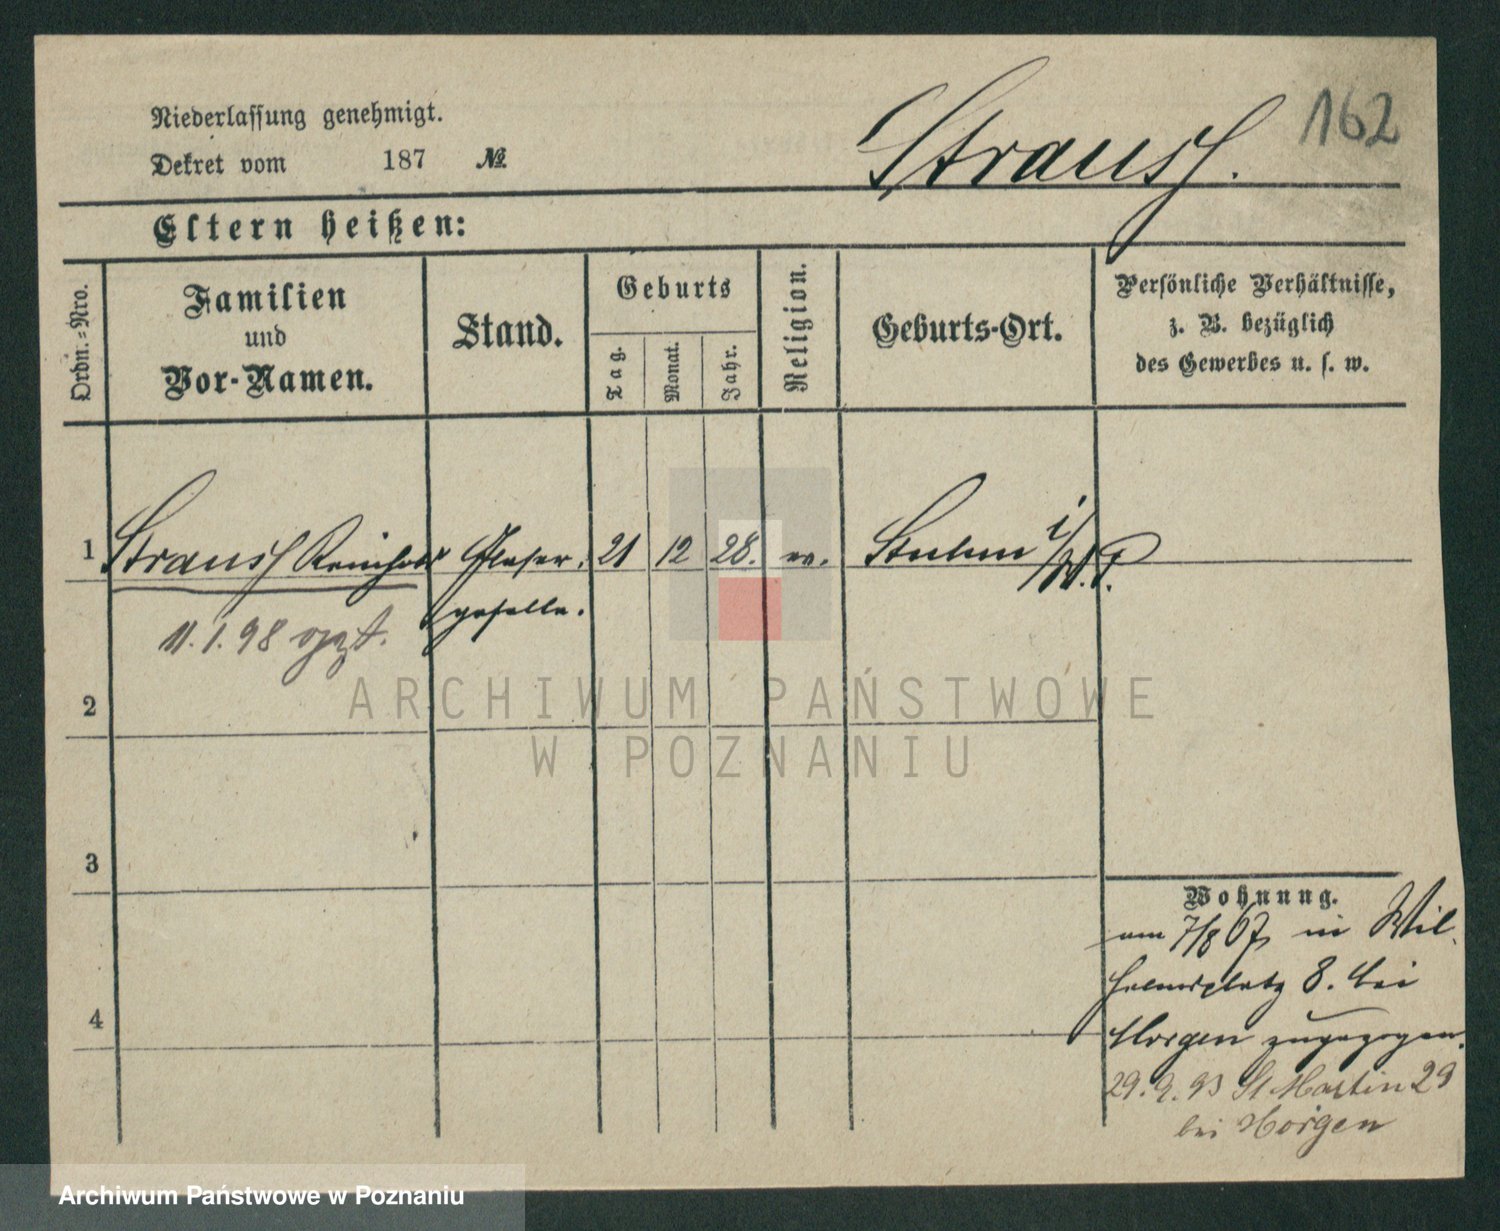 162
Niederlassung genehmigt.
Strauss.
Dekret vom 187 №
Eltern heißen:
Ordn.=Nro.
Familien
und
Vor-Namen.
Stand.
Geburts
Tag.
Monat.
Jahr.
Religion.
Geburts-Ort.
Persönliche Verhältnisse,
z. B. bezüglich
des Gewerbes u. s. w.
1 Strauss Reinhold Glaser- 21 12 28. ev. Stuhm i/W.P.
geselle.
11.1.98
2
3
4
Wohnung.
am 7/8 67 in Wil-
helmsplatz 8. bei
Horgen zugezogen.
29.9.93 St. Martin 29
bei Horgen
ARCHIWUM PAŃSTWOWE
W POZNANIU
Archiwum Państwowe w Poznaniu